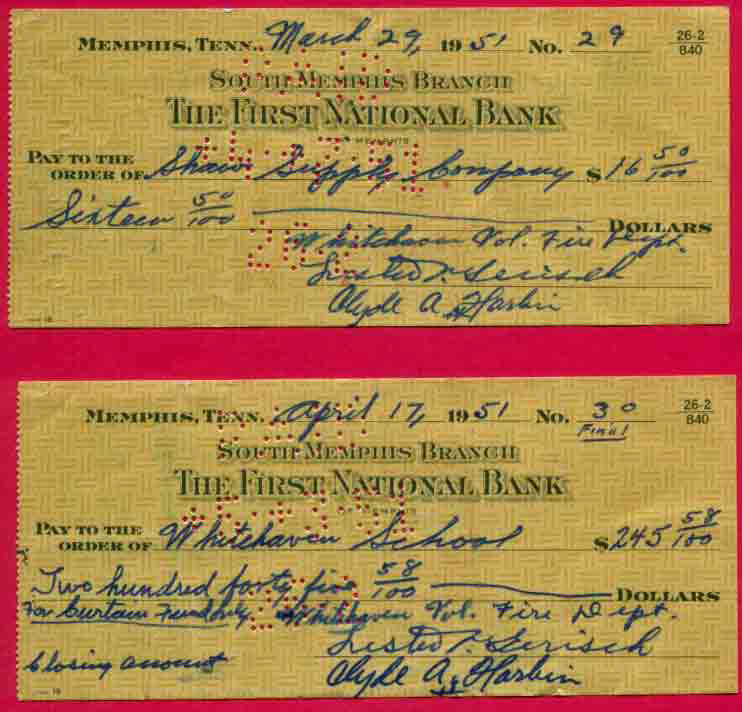 MEMPHIS, TENN., March 29, 1951 No. 29 26-2 840
SOUTH MEMPHIS BRANCH
THE FIRST NATIONAL BANK
OF MEMPHIS
PAY TO THE
ORDER OF Shaw Supply Company $ 16 50/100
Sixteen 50/100 DOLLARS
Whitehaven Vol. Fire Dept.
Clyde A. Harbin
MEMPHIS, TENN., April 17, 1951 No. 30 26-2 840
Final
SOUTH MEMPHIS BRANCH
THE FIRST NATIONAL BANK
OF MEMPHIS
PAY TO THE
ORDER OF Whitehaven School $ 245 58/100
Two hundred forty five 58/100 DOLLARS
For Curtain Fund only Whitehaven Vol. Fire Dept.
Closing amount
Clyde A. Harbin